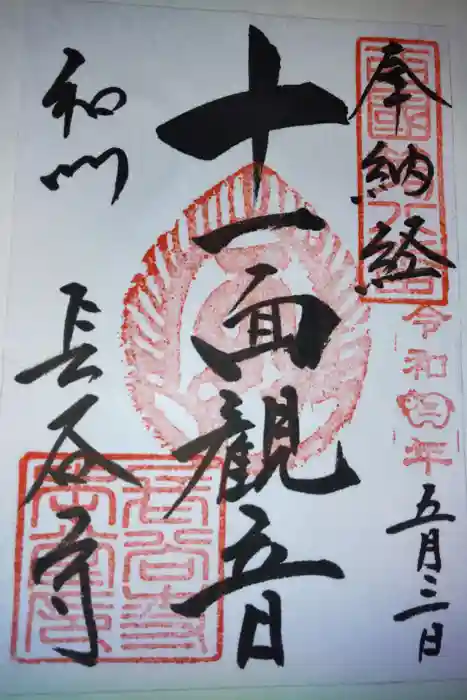 奉納経
令和四年
五月三日
十一面観音
和州
長谷寺